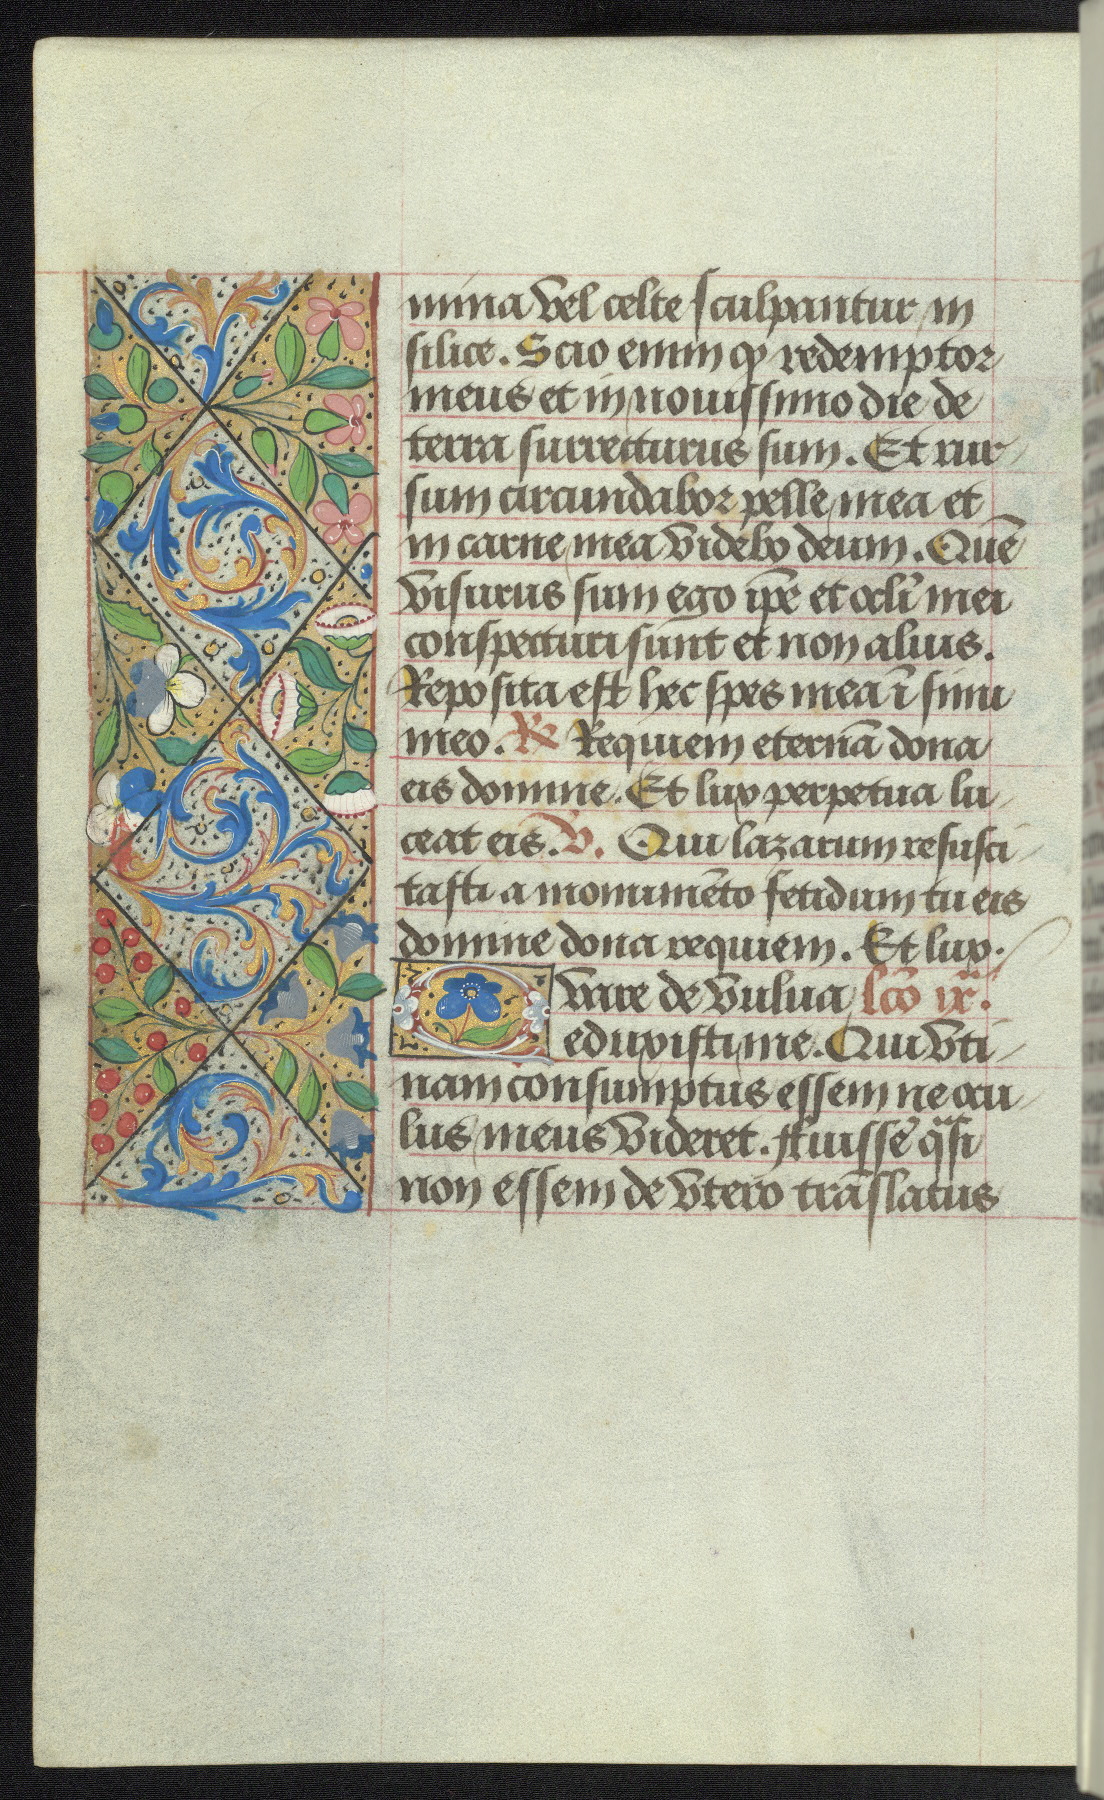 mina vel celte sculpantur in
silice. Scio enim qꝫ redemptor
meus et in nouissimo die de
terra surrecturus sum. Et rur
sum circundabor pelle mea et
in carne mea videbo deum. Quē
visurus sum ego ip̄e et oculi mei
conspecturi sunt et non alius.
Reposita est hec spes mea ī sinu
meo. R̷ Requiem eternā dona
eis domine. Et lux perpetua lu
ceat eis. V̷. Qui lazarum resusci
tasti a monumēto fetidum tu eis
domine dona requiem. Et lux.
Quare de vulua lcō ix.
eduxisti me. Qui vti
nam consumptus essem ne ocu
lus meus videret. Fuissē q̄si
non essem de vtero trāslatus